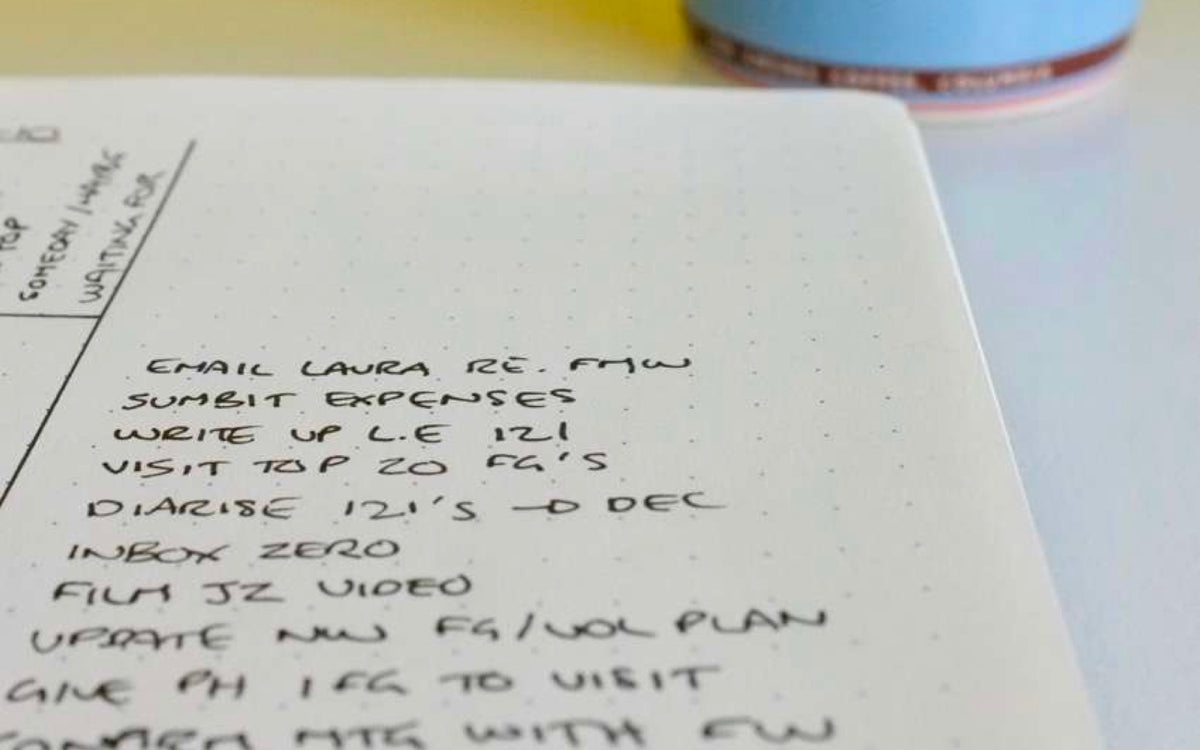 TOP
SOMEDAY / MAYBE
WAITING FOR
EMAIL LAURA RE. FMW
SUMBIT EXPENSES
WRITE UP L.E 121
VISIT TOP 20 FG'S
DIARISE 121'S → DEC
INBOX ZERO
FILM JZ VIDEO
UPDATE NW FG/VOL PLAN
GIVE PH 1 FG TO VISIT
CONFIRM MTG WITH EW